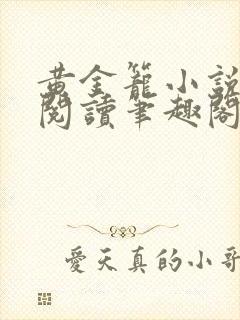 黄金籠小說
閱讀筆趣閣
愛天真的小哥